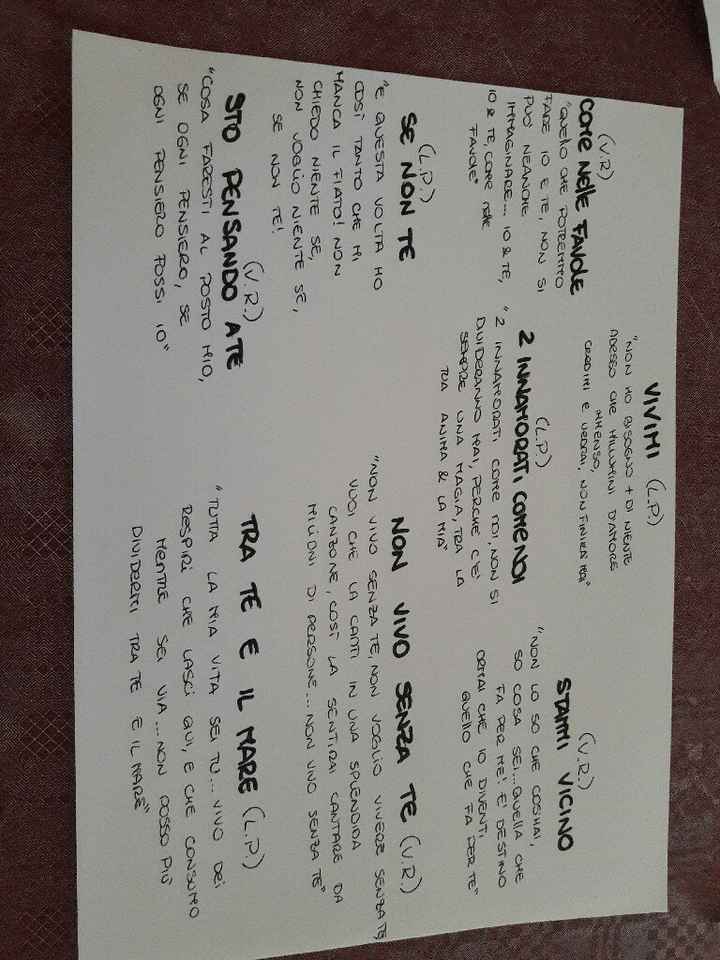 VIVIMI (L.P.)
"NON HO BISOGNO + DI NIENTE
ADESSO CHE MILLUMINI D'AMORE
IMMENSO,
CREDIMI E VEDRAI, NON FINIRÀ MAI"
(V.R)
COME NELLE FAVOLE
"QUELLO CHE POTREMMO
FARE IO E TE, NON SI
PUÒ NEANCHE
IMMAGINARE... IO & TE,
IO & TE, COME NELLE
FAVOLE"
(V.R.)
STAMMI VICINO
"NON LO SO CHE COSHAI,
SO COSA SEI... QUELLA CHE
FA PER ME! E' DESTINO
ORMAI CHE IO DIVENTI
QUELLO CHE FA PER TE"
(L.P)
2 INNAMORATI COME NOI
"2 INNAMORATI COME NOI NON SI
DIVIDERANNO MAI, PERCHÈ C'È
SEMPRE UNA MAGIA, TRA LA
TUA ANIMA & LA MIA"
(L.P.)
SE NON TE
"E QUESTA VOLTA HO
COSÌ TANTO CHE MI
MANCA IL FIATO! NON
CHIEDO NIENTE SE,
NON VOGLIO NIENTE SE,
SE NON TE!
NON VIVO SENZA TE (V.R.)
"NON VIVO SENZA TE, NON VOGLIO VIVERE SENZA TE
VUOI CHE LA CANTI IN UNA SPLENDIDA
CANZONE, COSÌ LA SENTIRAI CANTARE DA
MILIONI DI PERSONE... NON VIVO SENZA TE"
(V.R.)
STO PENSANDO A TE
"COSA FARESTI AL POSTO MIO,
SE OGNI PENSIERO, SE
OGNI PENSIERO FOSSI IO"
TRA TE E IL MARE (L.P.)
"TUTTA LA MIA VITA SEI TU... VIVO DEI
RESPIRI CHE LASCI QUI, E CHE CONSUMO
MENTRE SEI VIA... NON POSSO PIÙ
DIVIDERTI TRA TE E IL MARE"